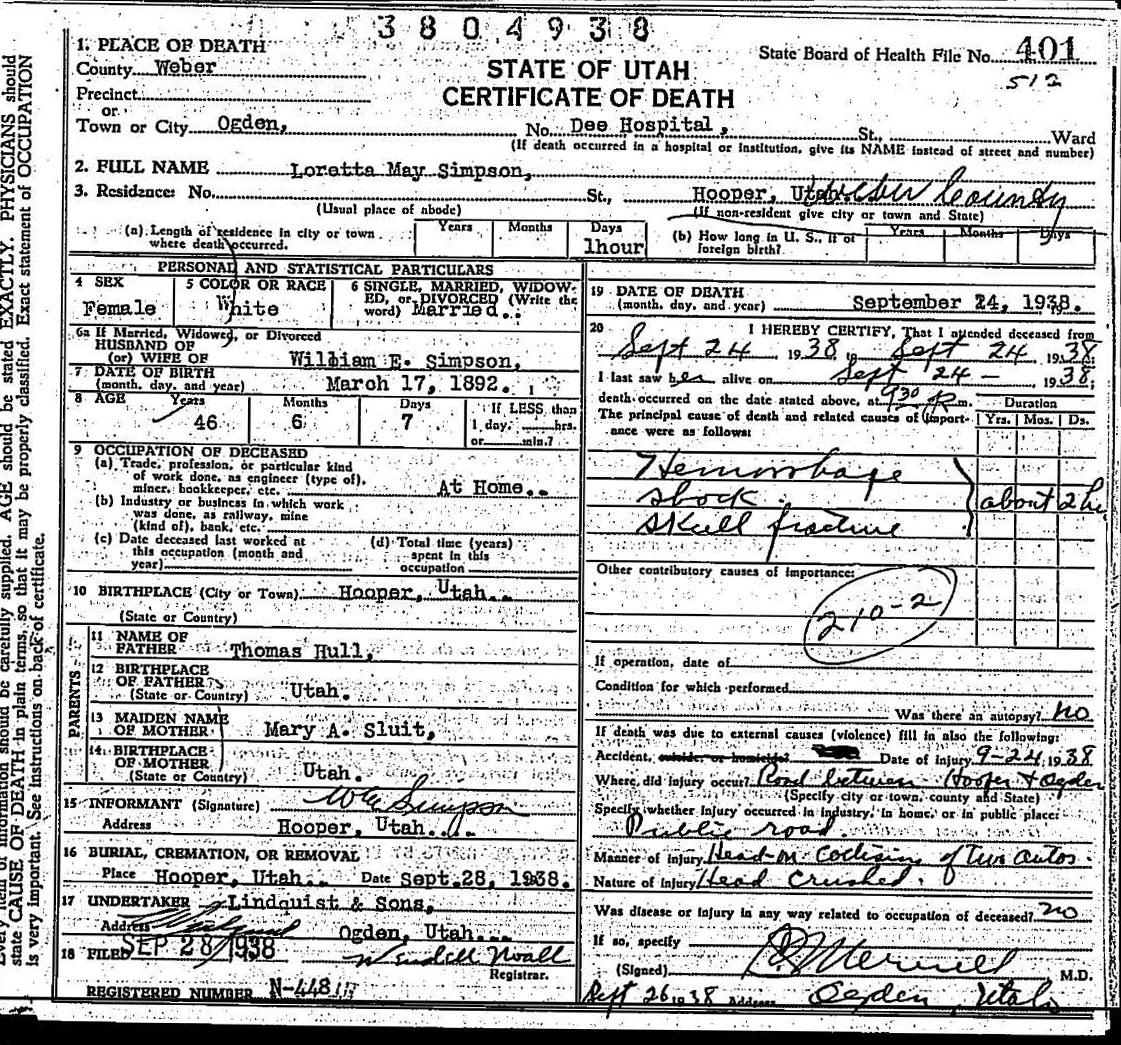 3804938
1. PLACE OF DEATH
County Weber
State Board of Health File No. 401
512
STATE OF UTAH
CERTIFICATE OF DEATH
Precinct
or
Town or City Ogden, No. Dee Hospital, St., Ward
(If death occurred in a hospital or institution, give its NAME instead of street and number)
2. FULL NAME Loretta May Simpson,
3. Residence: No. St., Hooper, Utah. Weber County
(Usual place of abode) (If non-resident give city or town and State)
(a) Length of residence in city or town where death occurred. Years Months Days 1hour
(b) How long in U. S., if of foreign birth? Years Months Days
PERSONAL AND STATISTICAL PARTICULARS
4 SEX Female
5 COLOR OR RACE White
6 SINGLE, MARRIED, WIDOWED, or DIVORCED (Write the word) Married.
6a If Married, Widowed, or Divorced
HUSBAND OF
(or) WIFE OF William E. Simpson,
7 DATE OF BIRTH
(month, day, and year) March 17, 1892.
8 AGE Years 46 Months 6 Days 7 If LESS than 1 day, hrs. or min.?
9 OCCUPATION OF DECEASED
(a) Trade, profession, or particular kind
of work done, as engineer (type of),
miner, bookkeeper, etc. At Home..
(b) Industry or business in which work
was done, as railway, mine
(kind of), bank, etc.
(c) Date deceased last worked at
this occupation (month and
year)
(d) Total time (years)
spent in this
occupation
10 BIRTHPLACE (City or Town) Hooper, Utah..
(State or Country)
PARENTS
11 NAME OF
FATHER Thomas Hull,
12 BIRTHPLACE
OF FATHER
(State or Country) Utah.
13 MAIDEN NAME
OF MOTHER Mary A. Sluit,
14 BIRTHPLACE
OF MOTHER
(State or Country) Utah.
15 INFORMANT (Signature) W E Simpson
Address Hooper, Utah.
16 BURIAL, CREMATION, OR REMOVAL
Place Hooper, Utah.. Date Sept. 28, 1938.
17 UNDERTAKER Lindquist & Sons,
Address Ogden, Utah...
18 FILED SEP 28 1938 Wendell Noall
Registrar.
REGISTERED NUMBER N-448
19 DATE OF DEATH
(month, day, and year) September 24, 1938.
20 I HEREBY CERTIFY, That I attended deceased from
Sept 24 1938 to Sept 24 1938;
I last saw her alive on Sept 24 - 1938;
death occurred on the date stated above, at 9 30 P m. Duration
The principal cause of death and related causes of importance were as follows: Yrs. Mos. Ds.
Hemorrhage
shock
skull fracture
about 2 hr
Other contributory causes of importance:
210-2
If operation, date of
Condition for which performed
Was there an autopsy? no
If death was due to external causes (violence) fill in also the following:
Accident, suicide, or homicide? Date of injury 9-24 1938
Where did injury occur? Road between Hooper & Ogden
(Specify city or town, county and State)
Specify whether injury occurred in industry, in home, or in public place:
Public road.
Manner of injury Head-on Collision of Two autos.
Nature of injury Head Crushed.
Was disease or injury in any way related to occupation of deceased? no
If so, specify
(Signed) Merrill M.D.
Sept 26 1938 Address Ogden, Utah
state CAUSE OF DEATH in plain terms, so that it may be properly classified. Exact statement of OCCUPATION
is very important. See instructions on back of certificate.
information should be carefully supplied. AGE should be stated EXACTLY. PHYSICIANS should